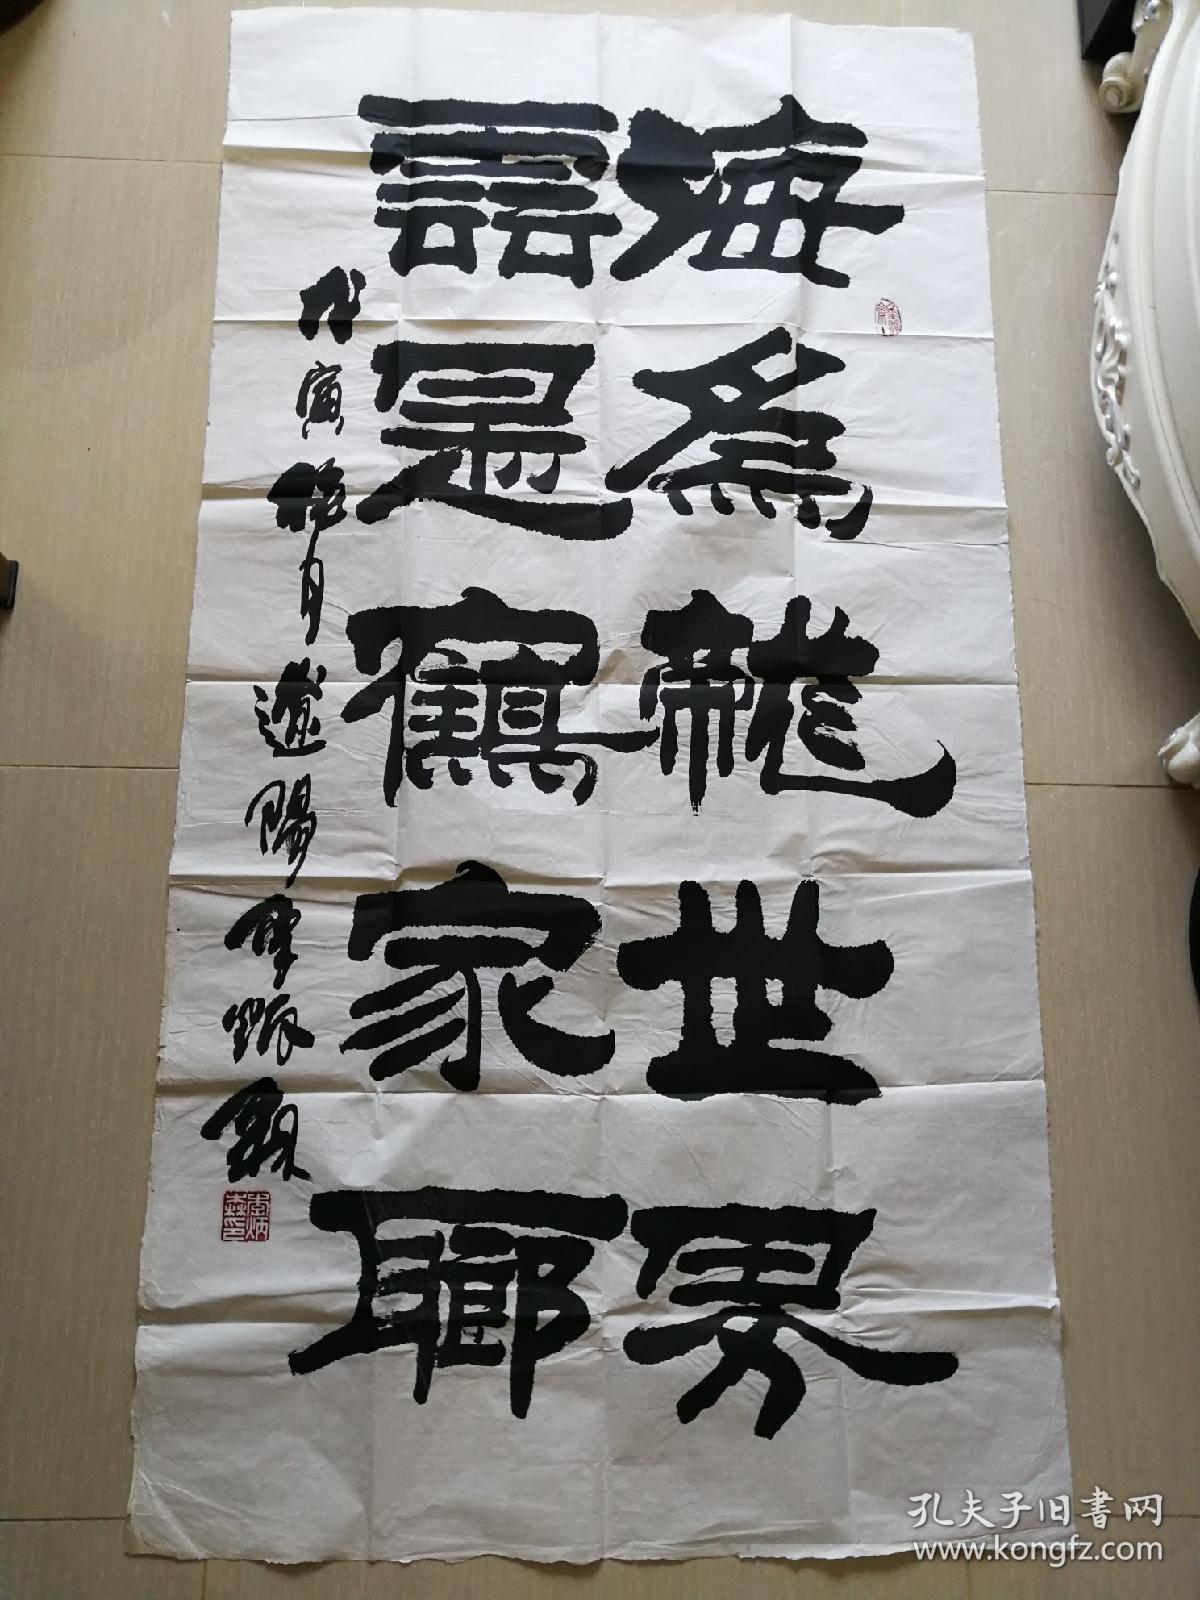 海為龍世界
雲是鶴家鄉
戊寅 月遼陽
孔夫子旧書网
www.kongfz.com